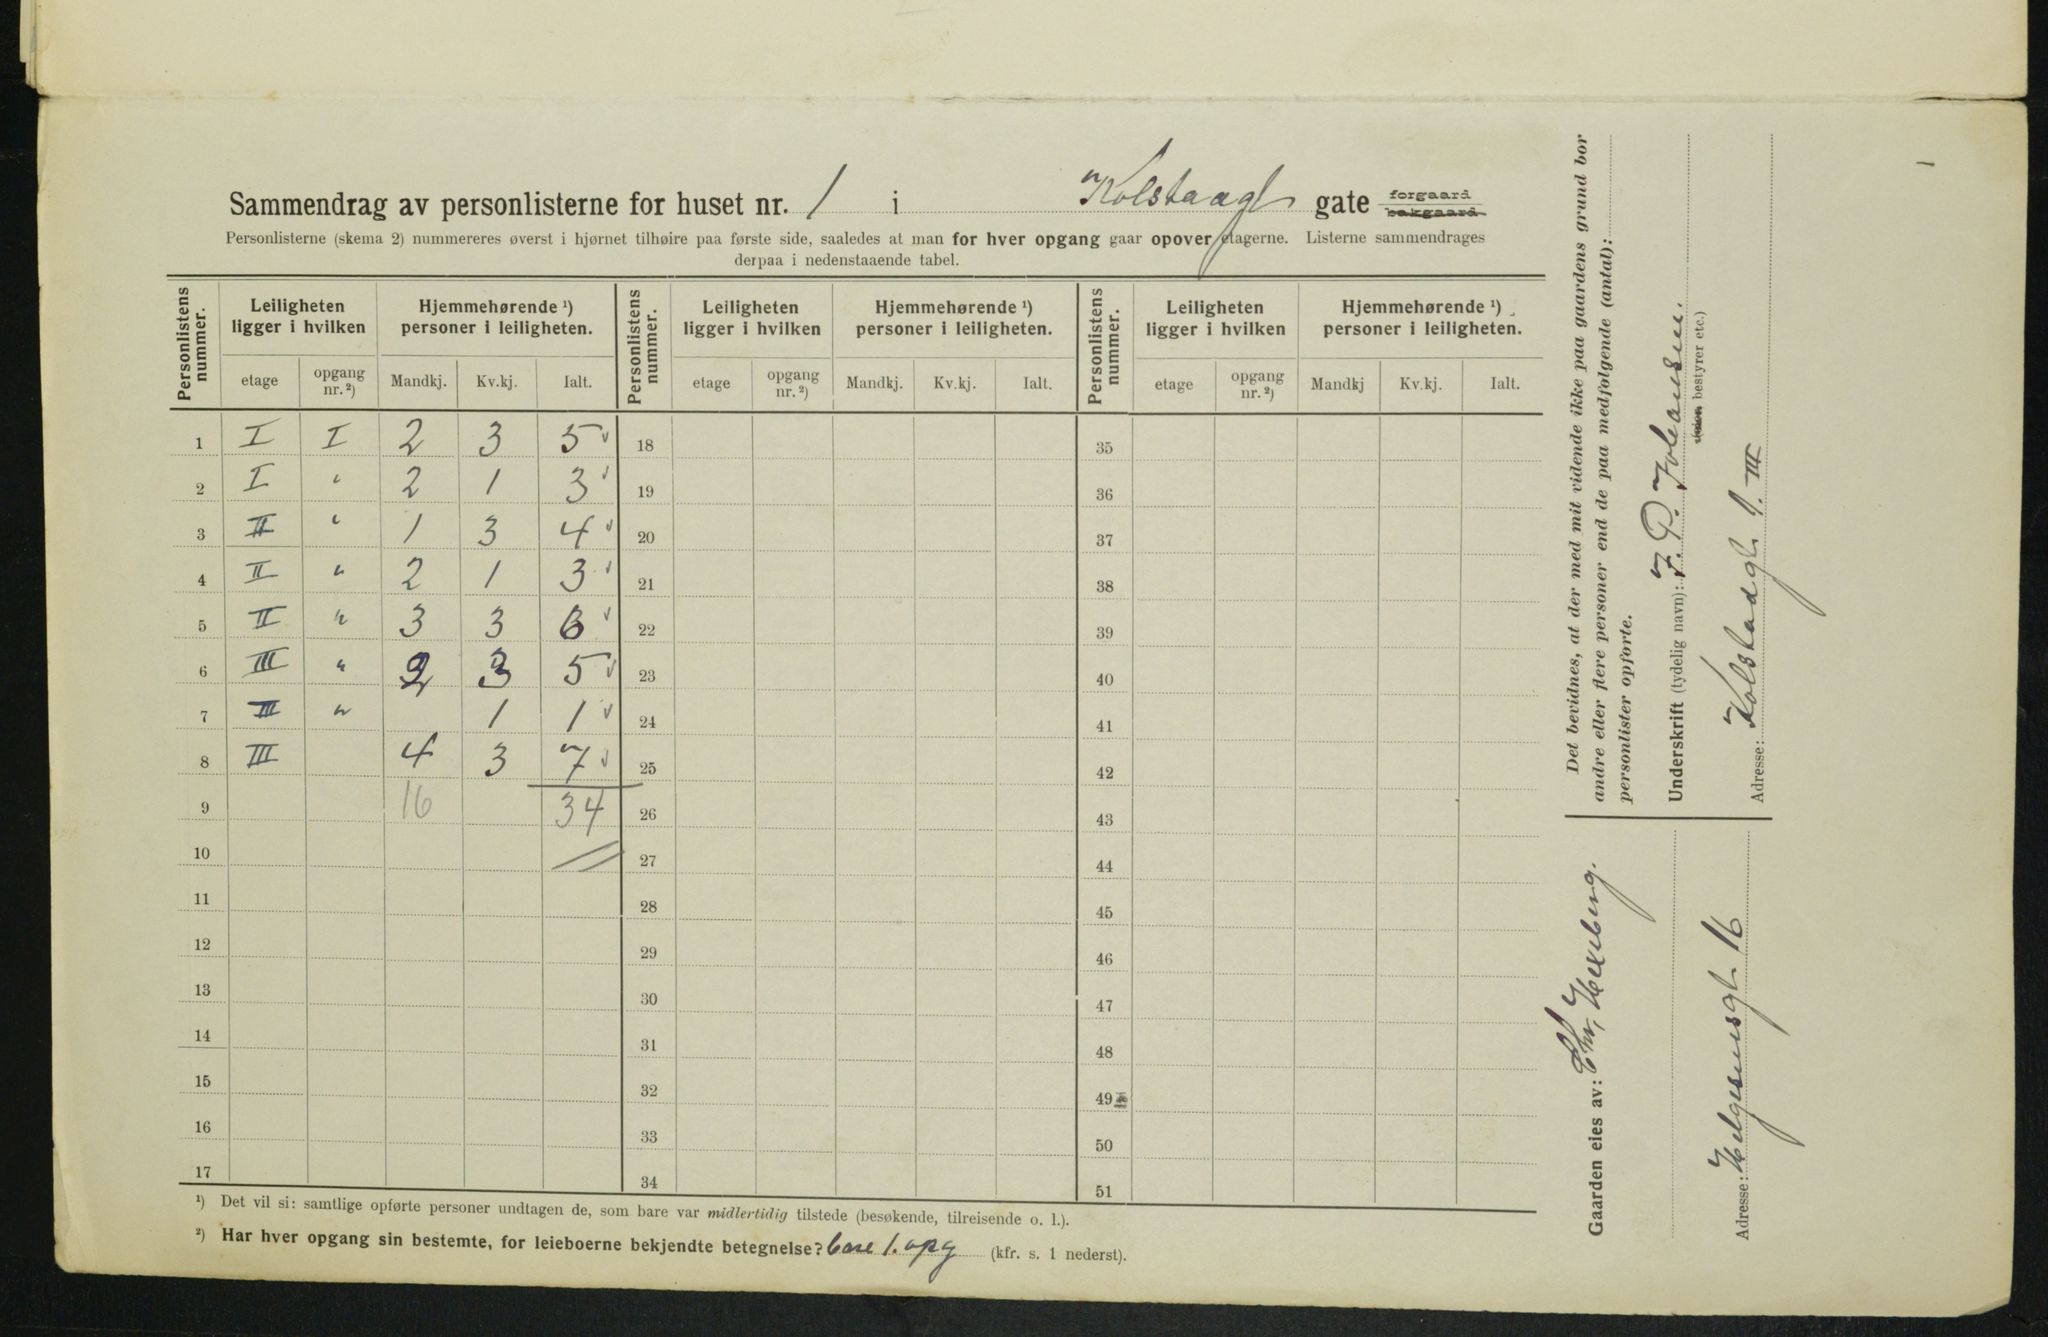 Sammendrag av personlisterne for huset nr. 1 i Kolstadgt gate forgaard bakgaard
Personlisterne (skema 2) nummereres øverst i hjørnet tilhøire paa første side, saaledes at man for hver opgang gaar opover etagerne. Listerne sammendrages
derpaa i nedenstaaende tabel.
Personlistens nummer. Leiligheten ligger i hvilken Hjemmehørende ¹) personer i leiligheten. Personlistens nummer. Leiligheten ligger i hvilken Hjemmehørende ¹) personer i leiligheten. Personlistens nummer. Leiligheten ligger i hvilken Hjemmehørende ¹) personer i leiligheten.
etage opgang nr. ²) Mandkj. Kv.kj. Ialt. etage opgang nr. ²) Mandkj. Kv.kj. Ialt. etage opgang nr. ²) Mandkj Kv.kj. Ialt.
1 I I 2 3 5 18 35
2 I " 2 1 3 19 36
3 II " 1 3 4 20 37
4 II " 2 1 3 21 38
5 II " 3 3 6 22 39
6 III " 2 3 5 23 40
7 III " 1 1 24 41
8 III 4 3 7 25 42
9 16 34 26 43
10 27 44
11 28 45
12 29 46
13 30 47
14 31 48
15 32 49
16 33 50
17 34 51
¹) Det vil si: samtlige opførte personer undtagen de, som bare var midlertidig tilstede (besøkende, tilreisende o. l.).
²) Har hver opgang sin bestemte, for leieboerne bekjendte betegnelse? bare 1. opg (kfr. s. 1 nederst).
Det bevidnes, at der med mit vidende ikke paa gaardens grund bor
andre eller flere personer end de paa medfølgende (antal):
personlister opførte.
Underskrift (tydelig navn): J. P. Johansen.
(eier, bestyrer etc.)
Adresse: Kolstadgt 1. III
Gaarden eies av: Chr. Hexeberg.
Adresse: Helgesensgt. 16